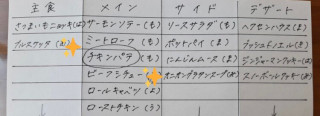 主食 メイン サイド デザート
さつまいもニョッキ(は) サーモンソテー(も) シーザーサラダ(も) ヘクセンハウス(ま)
ブルスケッタ(み) ミートローフ(も) ポットパイ(ま) ブッシュドノエル(ま)
チキンパテ(も) にんじんムース(ま) ジンジャーマンクッキー(ま)
ビーフシチュー(も) オニオングラタンスープ(み) スノーボールクッキー(み)
ロールキャベツ(よ)
ローストチキン(う)